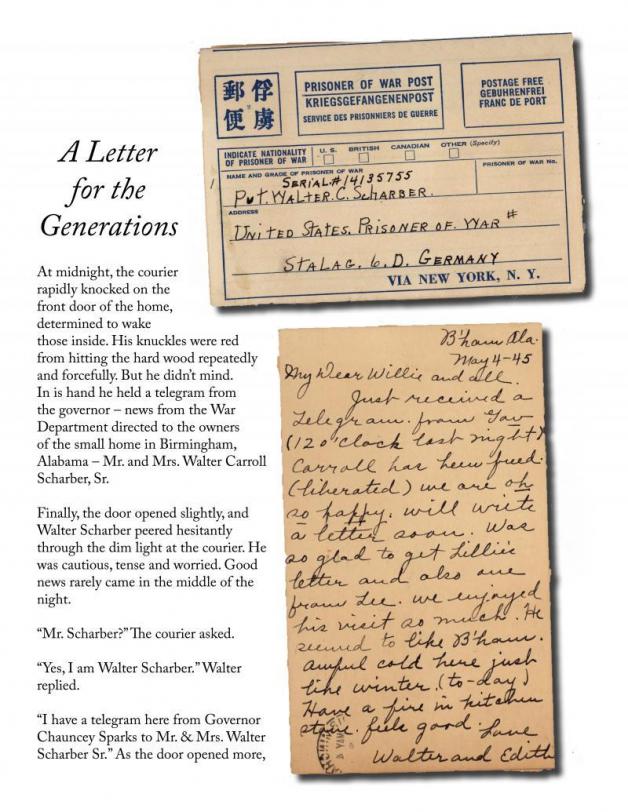 A Letter
for the
Generations
At midnight, the courier
rapidly knocked on the
front door of the home,
determined to wake
those inside. His knuckles were red
from hitting the hard wood repeatedly
and forcefully. But he didn't mind.
In is hand he held a telegram from
the governor – news from the War
Department directed to the owners
of the small home in Birmingham,
Alabama – Mr. and Mrs. Walter Carroll
Scharber, Sr.
Finally, the door opened slightly, and
Walter Scharber peered hesitantly
through the dim light at the courier. He
was cautious, tense and worried. Good
news rarely came in the middle of the
night.
“Mr. Scharber?” The courier asked.
“Yes, I am Walter Scharber.” Walter
replied.
“I have a telegram here from Governor
Chauncey Sparks to Mr. & Mrs. Walter
Scharber Sr.” As the door opened more,
郵便 俘虜
PRISONER OF WAR POST
KRIEGSGEFANGENENPOST
SERVICE DES PRISONNIERS DE GUERRE
POSTAGE FREE
GEBUHRENFREI
FRANC DE PORT
INDICATE NATIONALITY
OF PRISONER OF WAR
U. S. BRITISH CANADIAN OTHER (Specify)
NAME AND GRADE OF PRISONER OF WAR
PRISONER OF WAR No.
SERIAL # 14135755
PVT. WALTER. C. SCHARBER.
ADDRESS
UNITED STATES. PRISONER OF. WAR #
STALAG. 6. D. GERMANY
VIA NEW YORK, N. Y.
B'ham Ala.
May 4-45
My Dear Willie and all.
Just received a
Telegram. from Gov
(12 o'clock last night)
Carroll has been freed.
(liberated) we are oh
so happy. will write
a letter soon. Was
so glad to get Lillie
letter and also one
from Lee. we enjoyed
his visit so much. He
seemed to like B'ham.
awful cold here just
like winter. (to-day)
Have a fire in kitchen
stove. feels good. Love
Walter and Edith